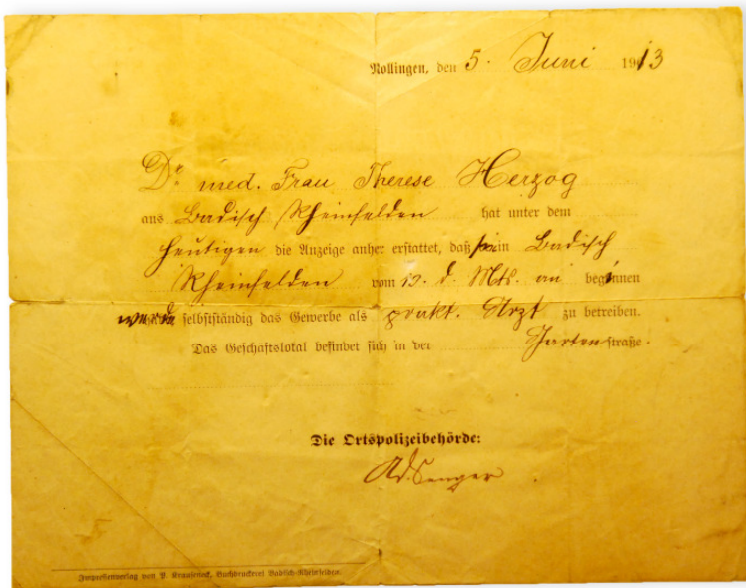 Nollingen, den 5. Juni 1913
Dr. med. Frau Therese Herzog
aus Badisch Rheinfelden hat unter dem
heutigen die Anzeige anher erstattet, daß sie in Badisch
Rheinfelden vom 10. d. Mts. an beginnen
werde selbstständig das Gewerbe als prakt. Arzt zu betreiben.
Das Geschäftslokal befindet sich in der Gartenstraße.
Die Ortspolizeibehörde:
Impressenverlag von P. Krauseneck, Buchdruckerei Badisch-Rheinfelden.